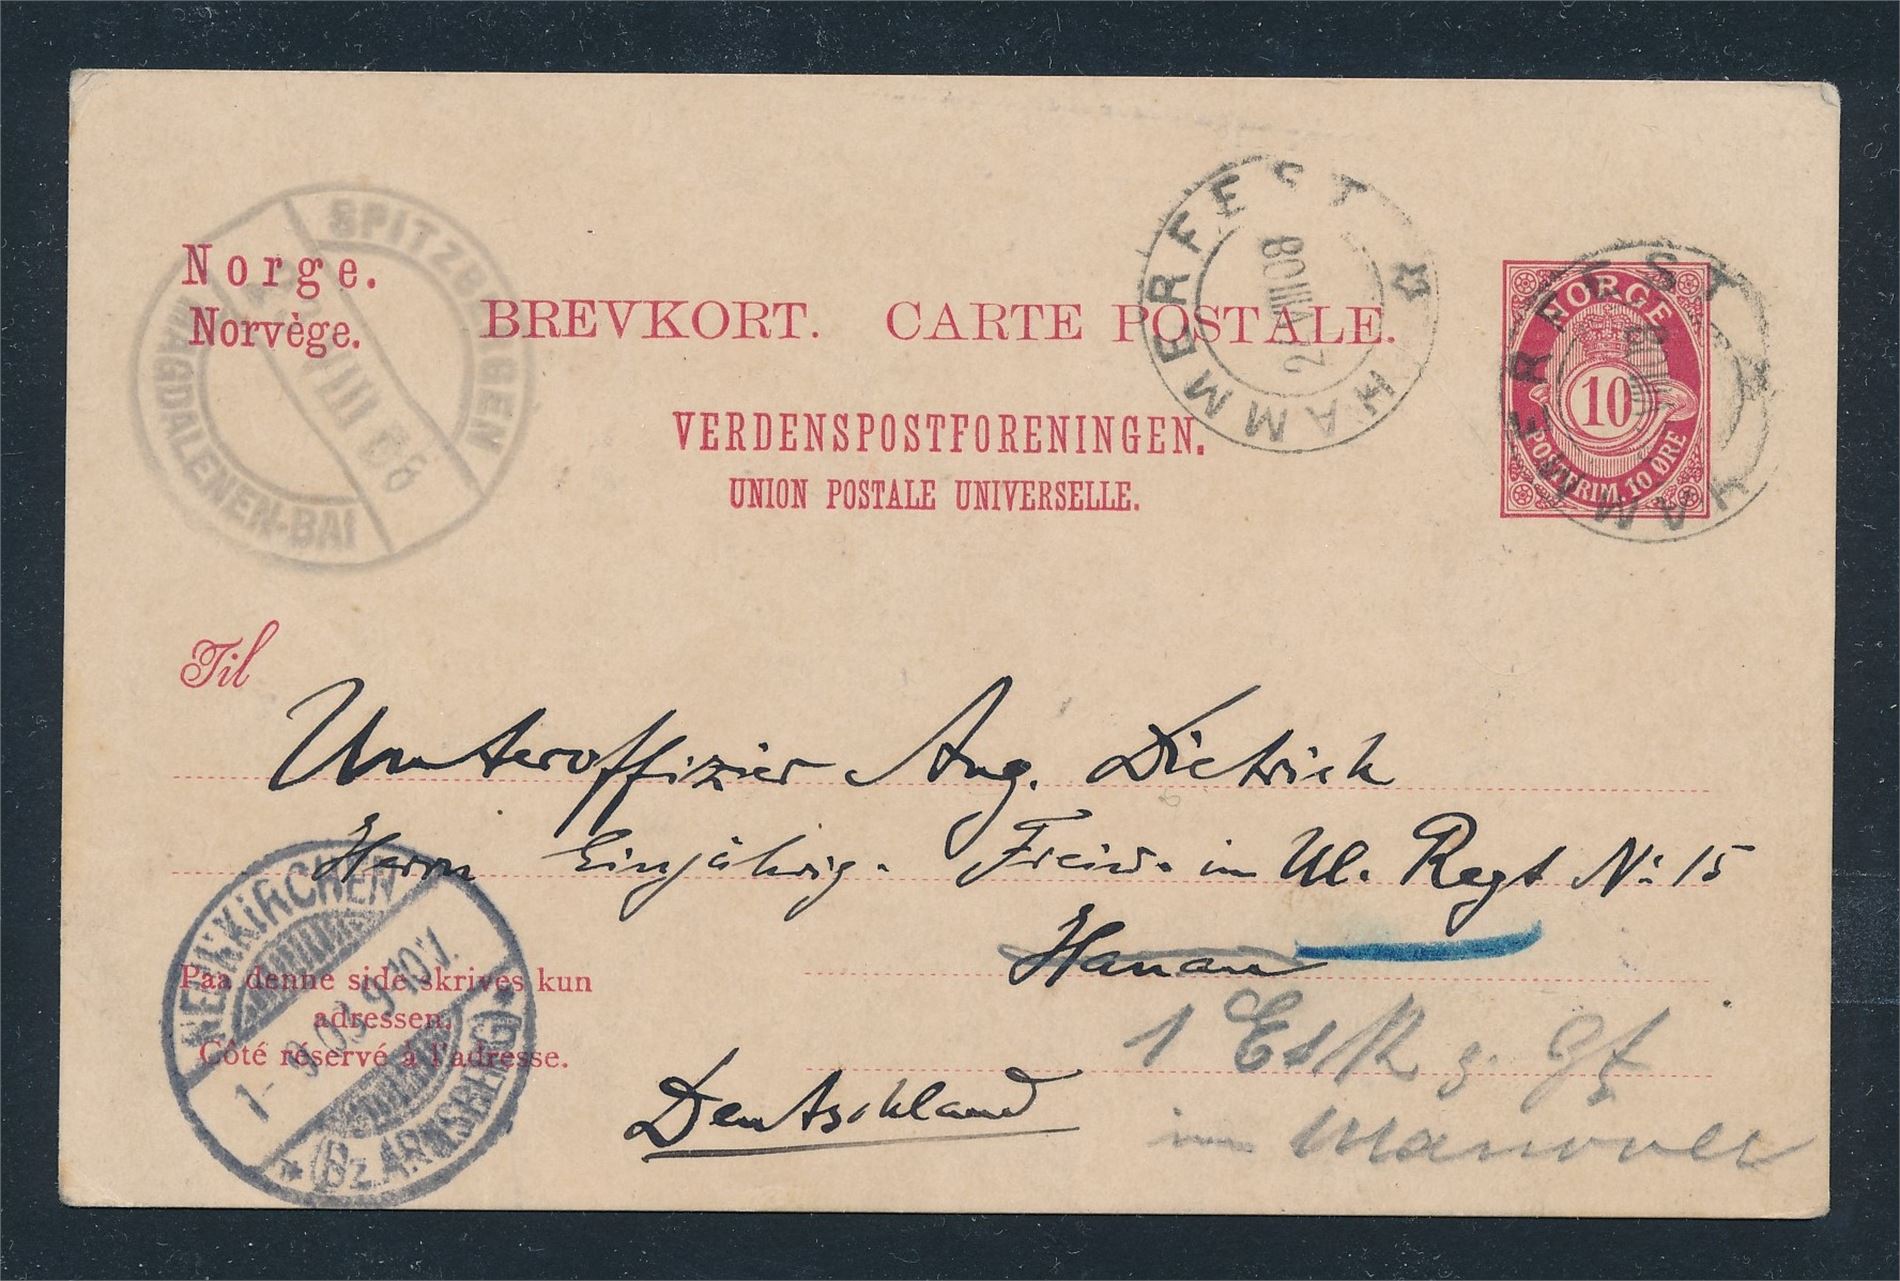 SPITZBERGEN
VIII 08
MAGDALENEN-BAI
Norge.
Norvège.
BREVKORT. CARTE POSTALE.
VERDENSPOSTFORENINGEN.
UNION POSTALE UNIVERSELLE.
HAMMERFEST
VIII 08
HAMMERFEST
NORGE
10
POSTFRIM. 10 ØRE
Til
Unteroffizier Aug. Dietrich
Herrn Einjährig. Freiw. im Ul. Regt No 15
Hanau
Paa denne side skrives kun
adressen.
Côté réservé à l'adresse.
1 Esk z. Zt
im Manöver
Deutschland
NEUNKIRCHEN
1-9.08.9-10V.
* (Bz. ARNSBERG) *